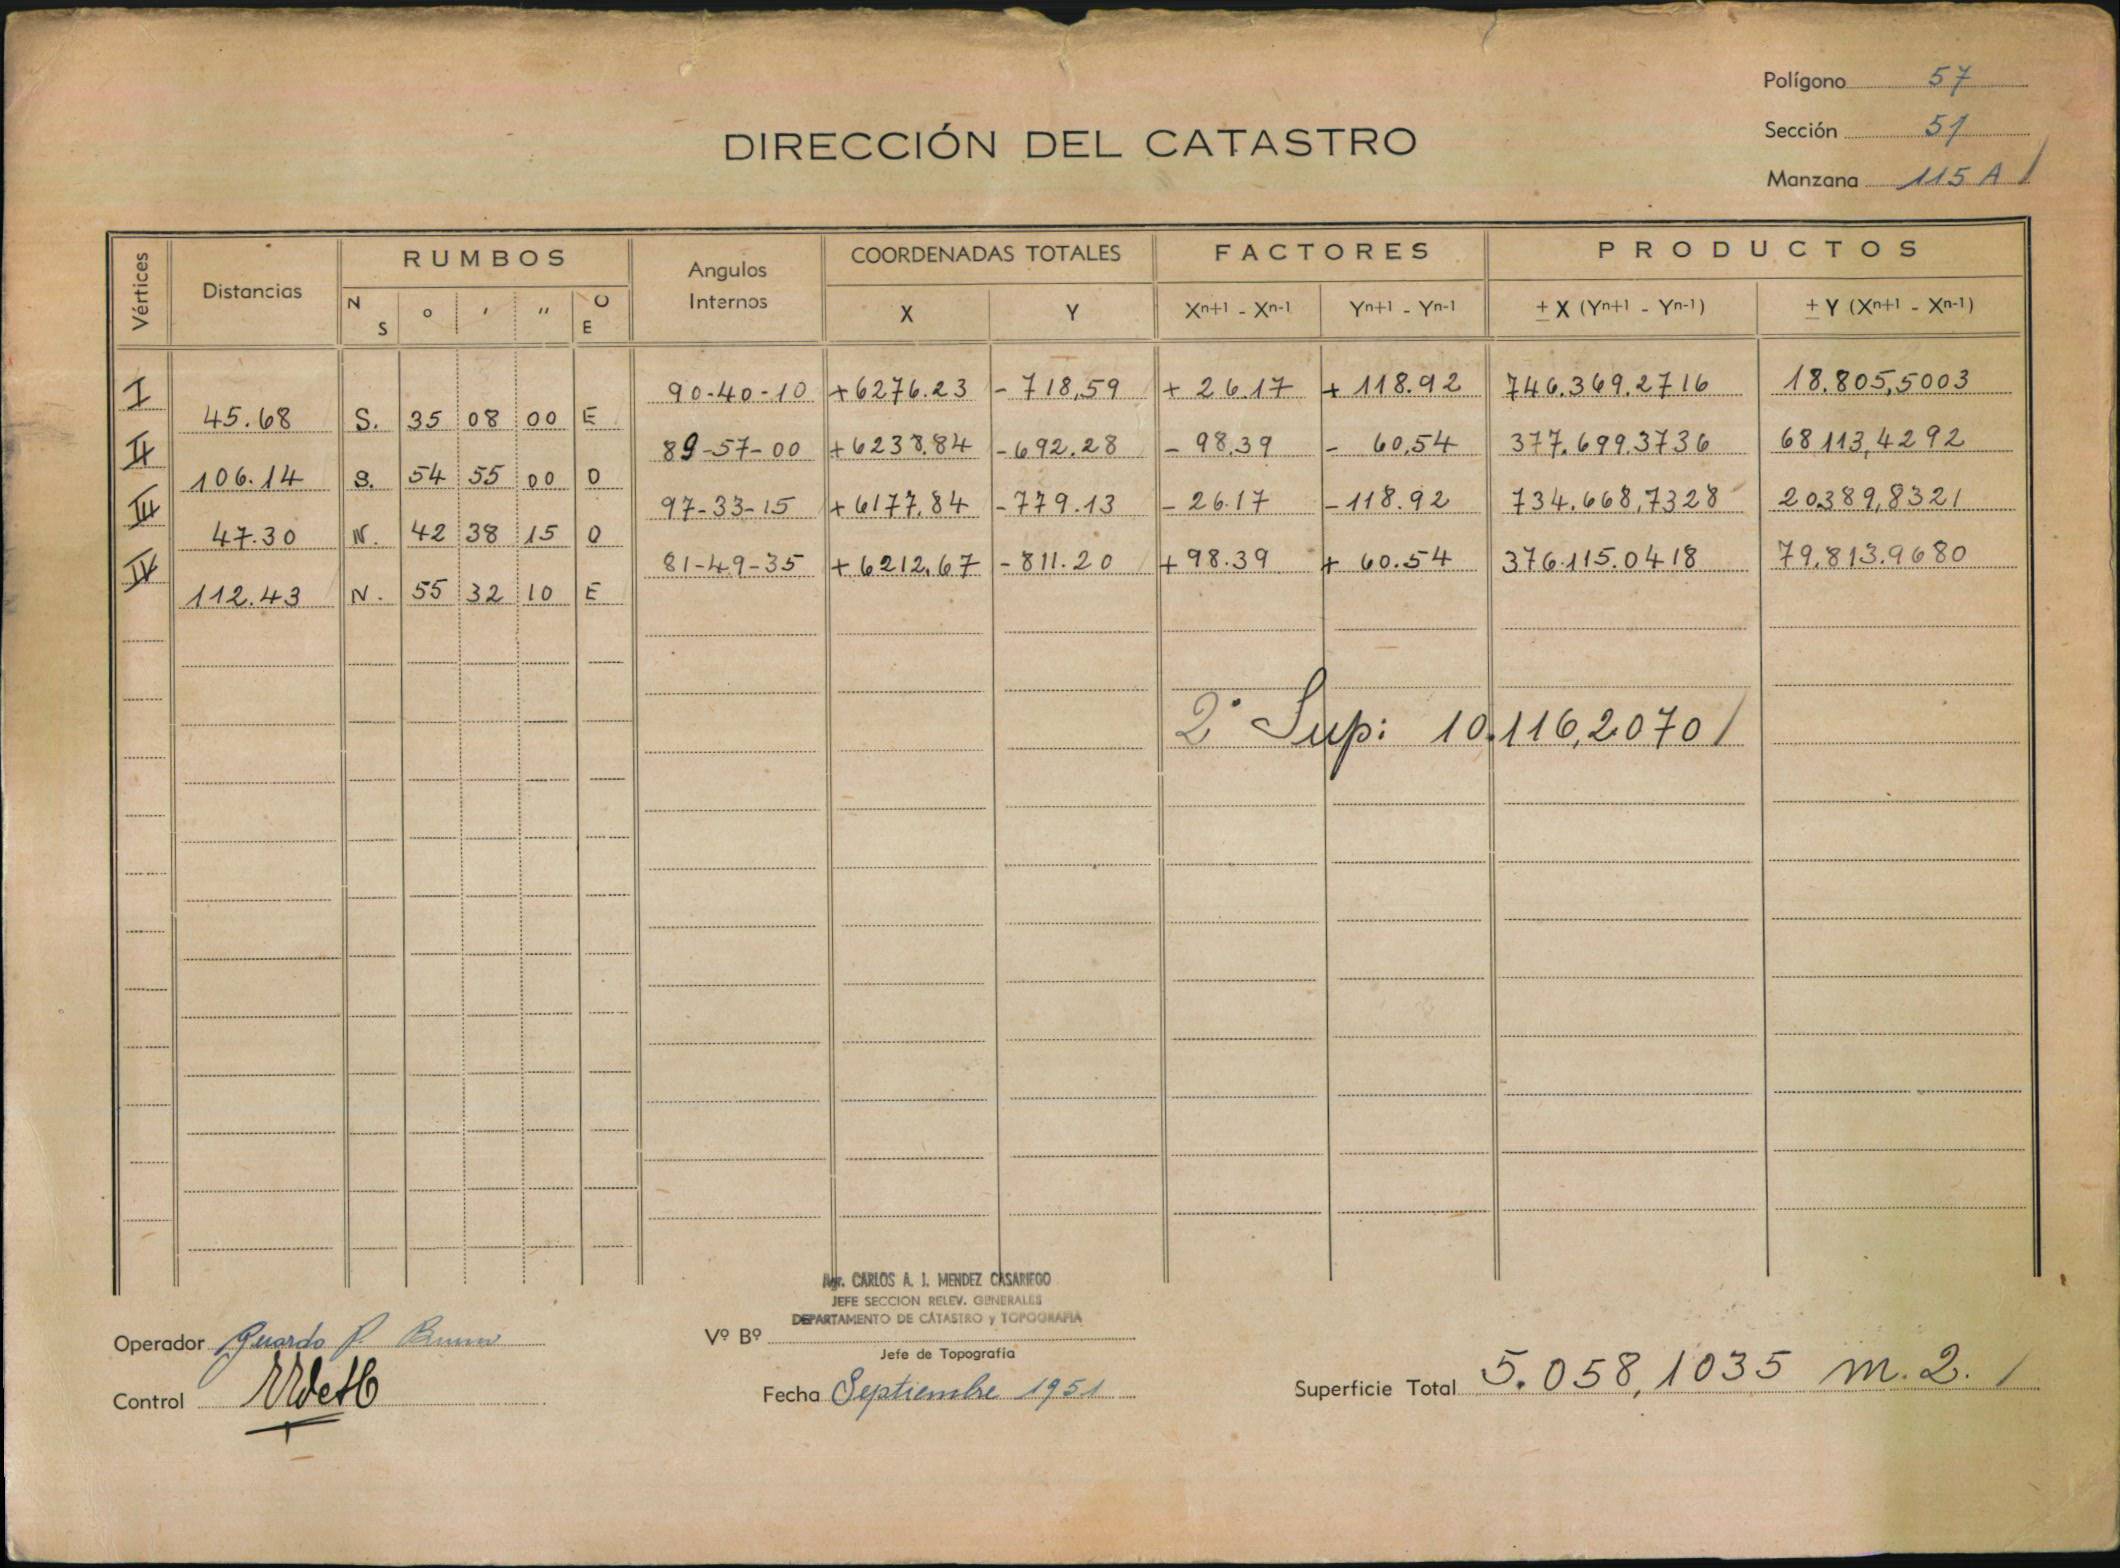 Polígono 57
Sección 51
Manzana 115 A
DIRECCIÓN DEL CATASTRO
Vértices Distancias RUMBOS Angulos Internos COORDENADAS TOTALES FACTORES PRODUCTOS
N S ° ' " O E X Y Xn+1 - Xn-1 Yn+1 - Yn-1 ± X (Yn+1 - Yn-1) ± Y (Xn+1 - Xn-1)
I 90-40-10 +6276.23 - 718,59 + 26.17 + 118.92 746.369.2716 18.805,5003
45.68 S. 35 08 00 E
II 89-57-00 +6238.84 -692.28 - 98,39 - 60,54 377.699.3736 68 113,4292
106.14 S. 54 55 00 O
III 97-33-15 +6177,84 -779.13 - 26.17 -118.92 734.668,7328 20389,8321
47.30 N. 42 38 15 O
IV 81-49-35 +6212,67 -811.20 +98.39 + 60.54 376.115.0418 79.813.9680
112.43 N. 55 32 10 E
2° Sup: 10.116,2070
Agr. CARLOS A. J. MENDEZ CASARIEGO
JEFE SECCION RELEV. GENERALES
DEPARTAMENTO DE CATASTRO y TOPOGRAFIA
Operador
Vº Bº
Jefe de Topografía
Control
Fecha Septiembre 1951
Superficie Total 5.058,1035 m.2.